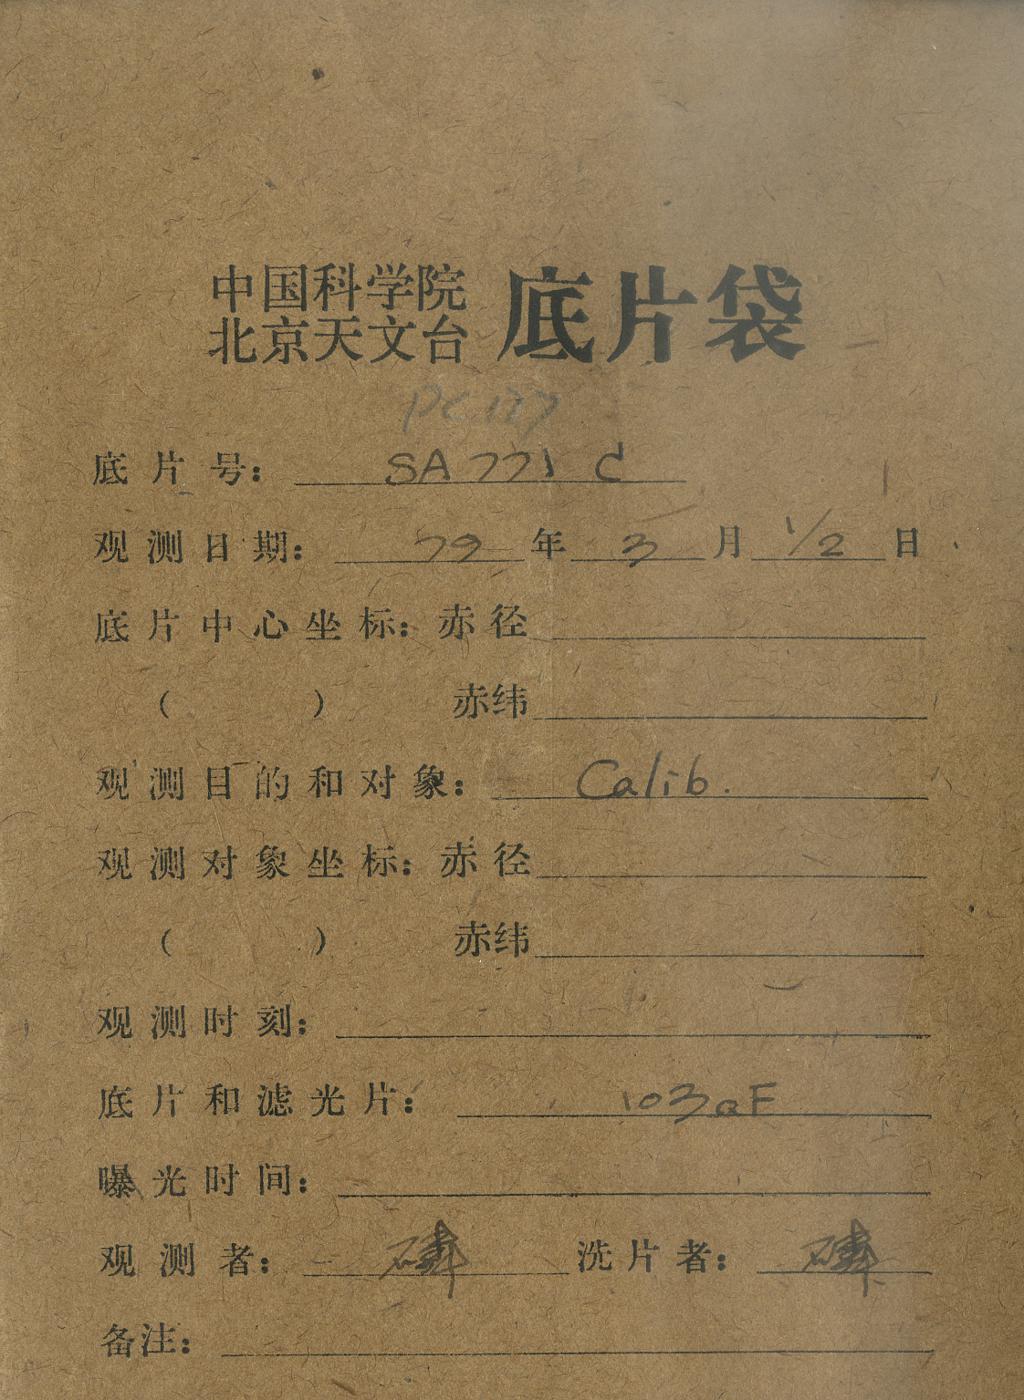 中国科学院
北京天文台 底片袋
底片号： SA771 C
观测日期： 79 年 3 月 1/2 日
底片中心坐标：赤径
（ ） 赤纬
观测目的和对象： Calib.
观测对象坐标：赤径
（ ） 赤纬
观测时刻：
底片和滤光片： 103aF
曝光时间：
观测者： 洗片者：
备注：